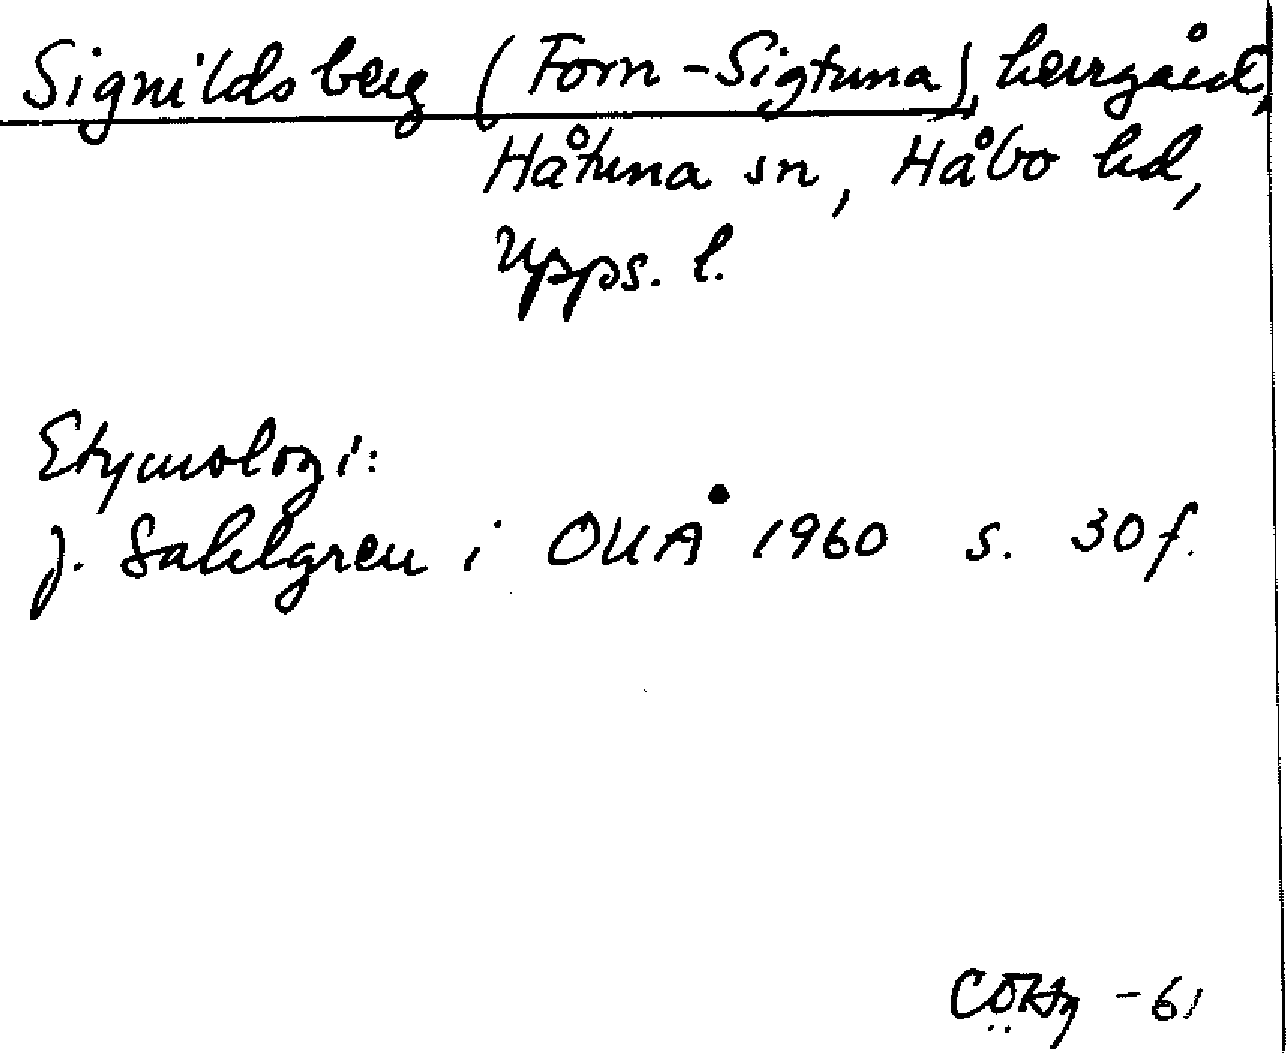 Signildsberg (Forn-Sigtuna), herrgård,
Håtuna sn, Håbo hd,
Upps. l.
Etymologi:
J. Sahlgren i OUÅ 1960 s. 30 f.
-61